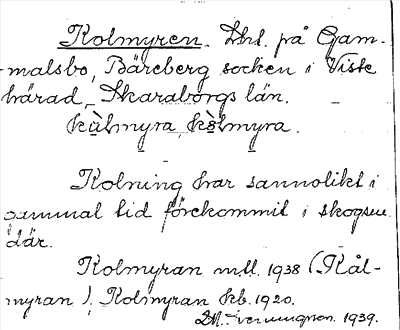 Kolmyren. Ihl. på Gam-
malsbo, Bäreberg socken i Viste
härad, Skaraborgs län.
kùlmyra, kòlmyra.
Kolning har sannolikt i
gammal tid förekommit i skogen
där.
Kolmyran mtl. 1938 (Kål-
myran). Kolmyran kb. 1920.
1939.